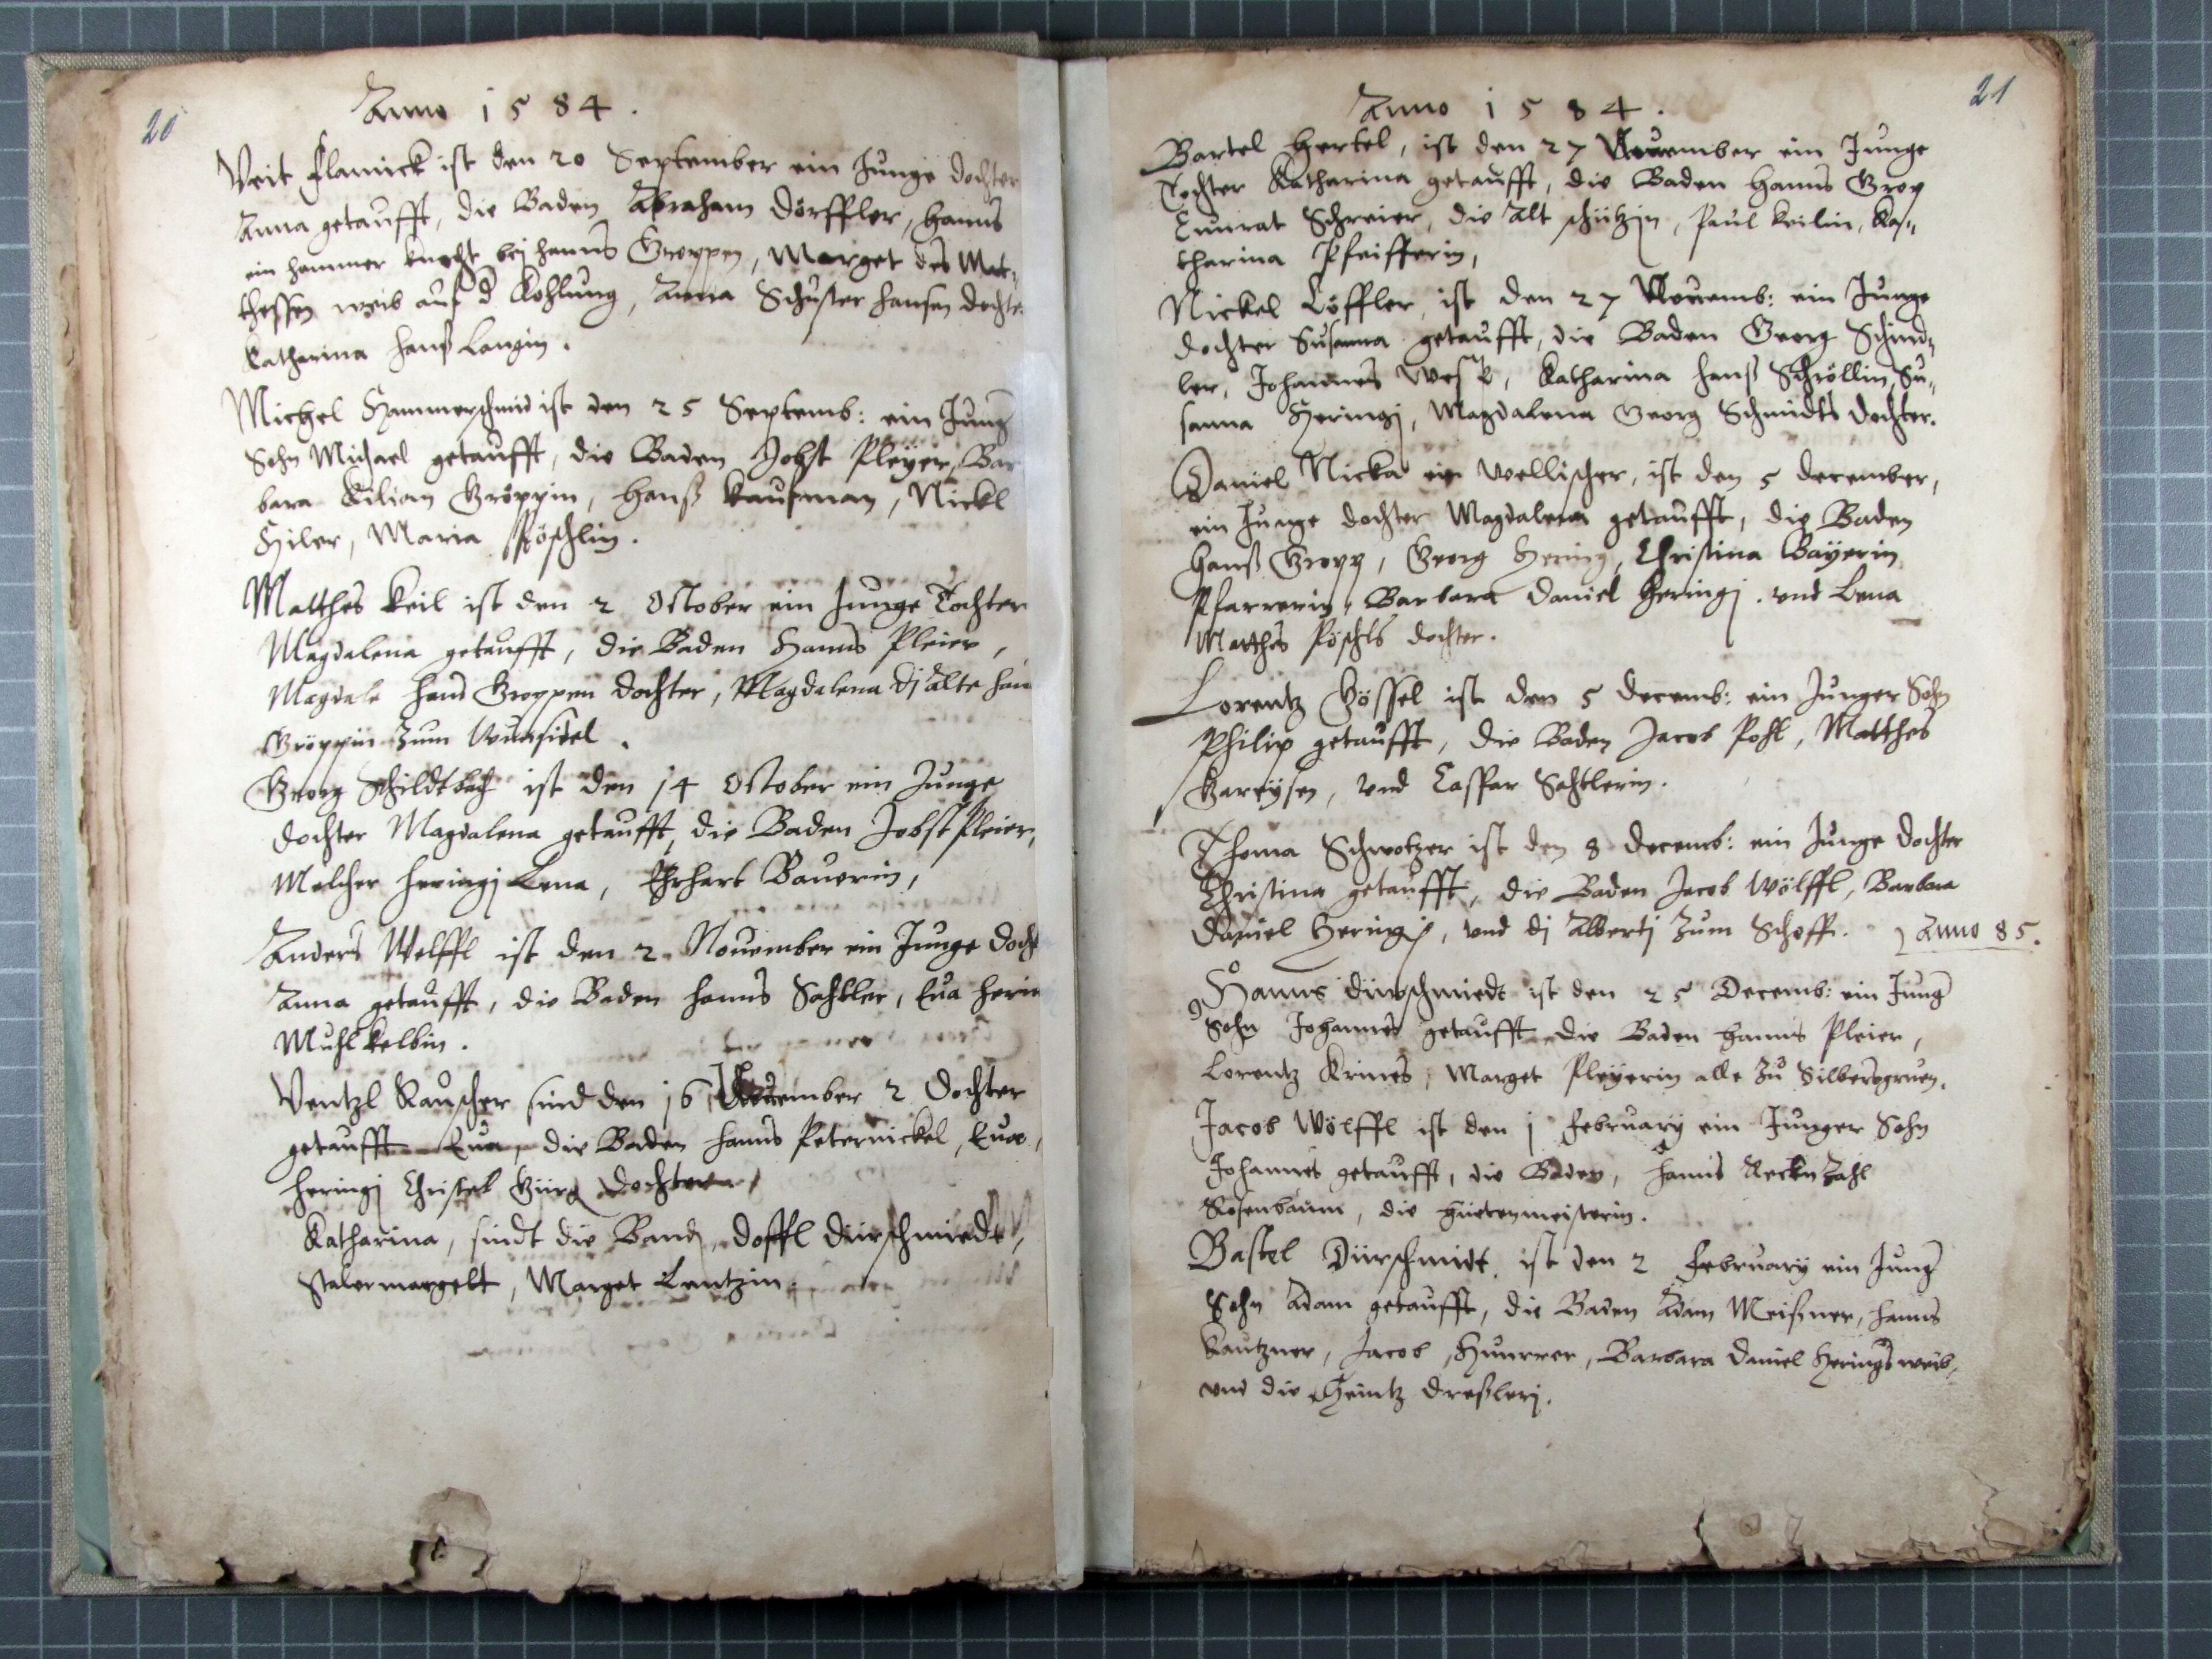 20
Anno 1584.
Veit Flamick ist den 20 September ein Junge dochter
Anna getaufft, die Baden Abraham Dörffler, Hanns
ein hammer knecht bej hanns Groppen, Marget des Mat-
thessen weib auf d Kohlung, Anna Schuster hansen dochte
Catharina hanß Langin.
Michel Hammerschmid ist den 25 Septemb: ein Jung
Sohn Michael getaufft, die Baden Jobst Pleÿer, Bar
bara Kilian Gröppin, Hanß Kaufman, Nickl
Hiler, Maria Pöschlin.
Matthes Keil ist den 2 October ein Junge Tochter
Magdalena getaufft, die Baden Hanns Pleier,
Magdale hans Groppen dochter, Magdalena dj alte han
Gröppin zum Wunsidel.
Georg Schildtbach ist den 14 October ein Junge
dochter Magdalena getaufft, die Baden Jobst Pleier,
Melcher heringj Lena, Ehrhart Bauerin,
Anders Welffl ist den 2 Nouember ein Junge doch
Anna getaufft, die Baden hanns Sahtler, Eua herin
Muhl kelbin.
Ventzl Rauscher sind den 16 Nouember 2 Dochter
getaufft Eua, die Baden hanns Peternickel, Eua,
heringj Christel Dochter,
Katharina, sindt die Band, doffl dürschmiedt,
Marget Lentzin.
21
Anno 1584.
Bartel Hertel, ist den 27 Nouember ein Junge
Tochter Katharina getaufft, die Baden hanns Grop
Cunrat Schreier, die alt schützin, Paul keilin, Ka-
tharina Pfeifferin,
Nickel Löffler, ist den 27 Nouemb: ein Junge
dochter Susanna getaufft, die Baden Georg Schind-
ler, Johannes, Katharina hanß Schröllin, Su-
sanna Heringj, Magdalena Georg Schmidts dochter.
Daniel Nicka ein wellischer, ist den 5 december,
ein Junge dochter Magdalena getaufft, die Baden
Hanß Gropp, Georg Hering, Christina Baÿerin
Pfarrerin, Barbara Daniel heringj. und Lena
Matthes Pöschls dochter.
Lorentz Gössel ist den 5 decemb: ein Junger Sohn
Philip getaufft, die Baden Jacob Pohl, Matthes
Gareÿsen, und Casspar Sahtlerin.
Thoma Schwotzer ist den 8 decemb: ein Junge dochter
Christina getaufft, die Baden Jacob Wölffl, Barbara
Daniel Heringj, und dj Albertj zum Schoff. Anno 85.
Hanns dürschmiedt ist den 25 Decemb: ein Jung
Sohn Johannes getaufft die Baden hanns Pleier,
Lorentz Krines, Marget Pleÿerin alle zu Silbersgruen.
Jacob Wölffl ist den 1 februarÿ ein Junger Sohn
Johannes getaufft, die Baden, hanns
Rosenbaum, die hüetenmeisterin.
Bastel Dürschmidt, ist den 2 februarÿ ein Jung
Sohn Adam getaufft, die Baden Adam Meißner, hanns
Kautzner, Jacob, Barbara Daniel Herings weib,
und die Heintz dreßlerj.